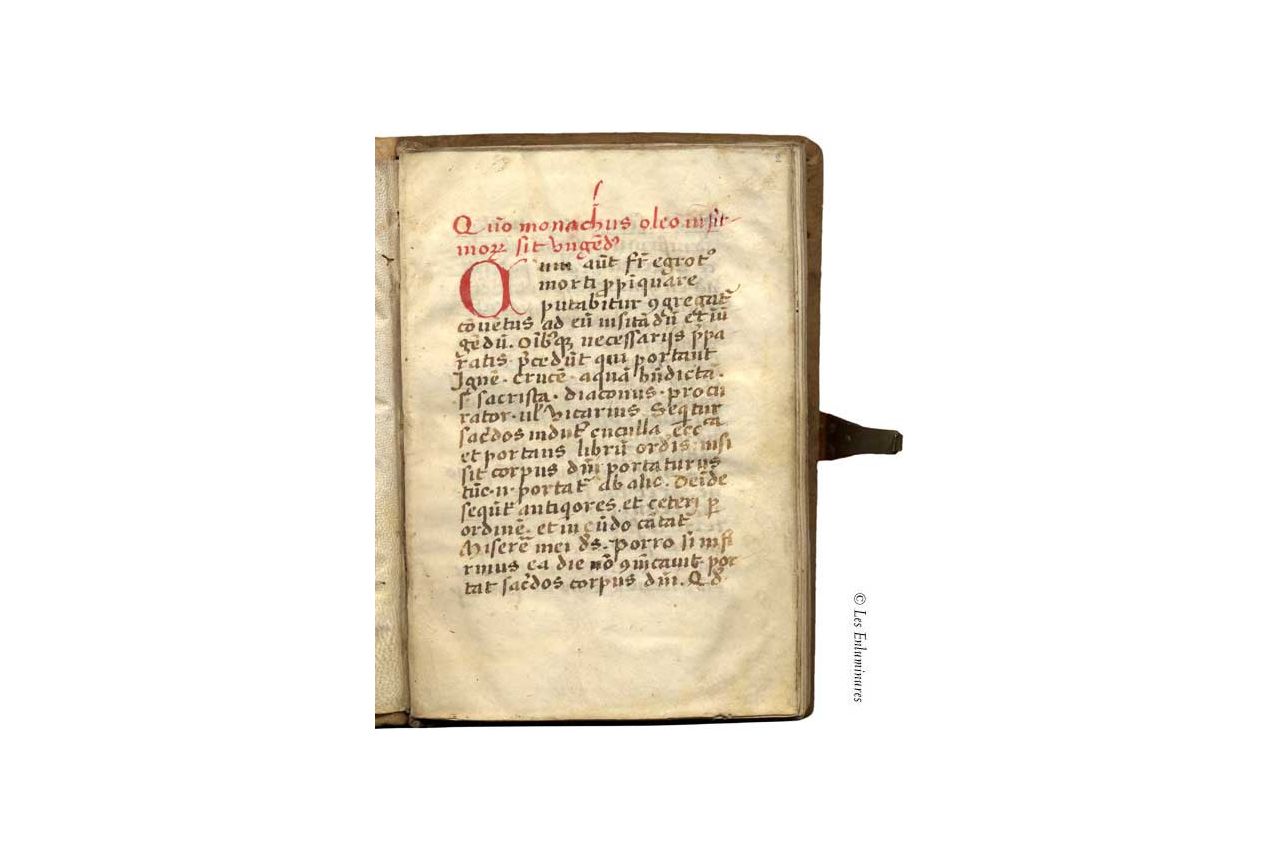 2
Q uo̅ monachus oleo in̅fir
moꝝ sit vnge̅dꝰ
Q uu̅ au̅t fr̅ egrotꝰ
morti p̅pi̅quare
putabitur ꝯgregat̅
co̅uetus ad eu̅ uisita̅du̅ et u̅
ge̅du̅. Oi̅bꝰqꝫ necessarijs p̅pa
ratis p̅cedu̅t qui portant
Igne̅ · cruce̅ · aqua̅ bn̅dicta̅ ·
sꝫ sacrista · diaconus · procu
rator · ul̅ vicarius. Seqͥtur
sac̅dos indut̅ cuculla ecc̅a
et portans libru̅ ordis nisi
sit corpus dn̅i portaturus
tu̅c · n · portat̅ ab alio. Dei̅de
sequt̅ antiqͥores et ceteri ꝑ
ordine̅. et in eu̅do ca̅tat̅
Misere̅ mei ds̅. Porro si infi
rmus ea die no̅ ꝯmu̅icauit por
tat sac̅dos corpus dn̅i. Q d̅
© Les Enluminures